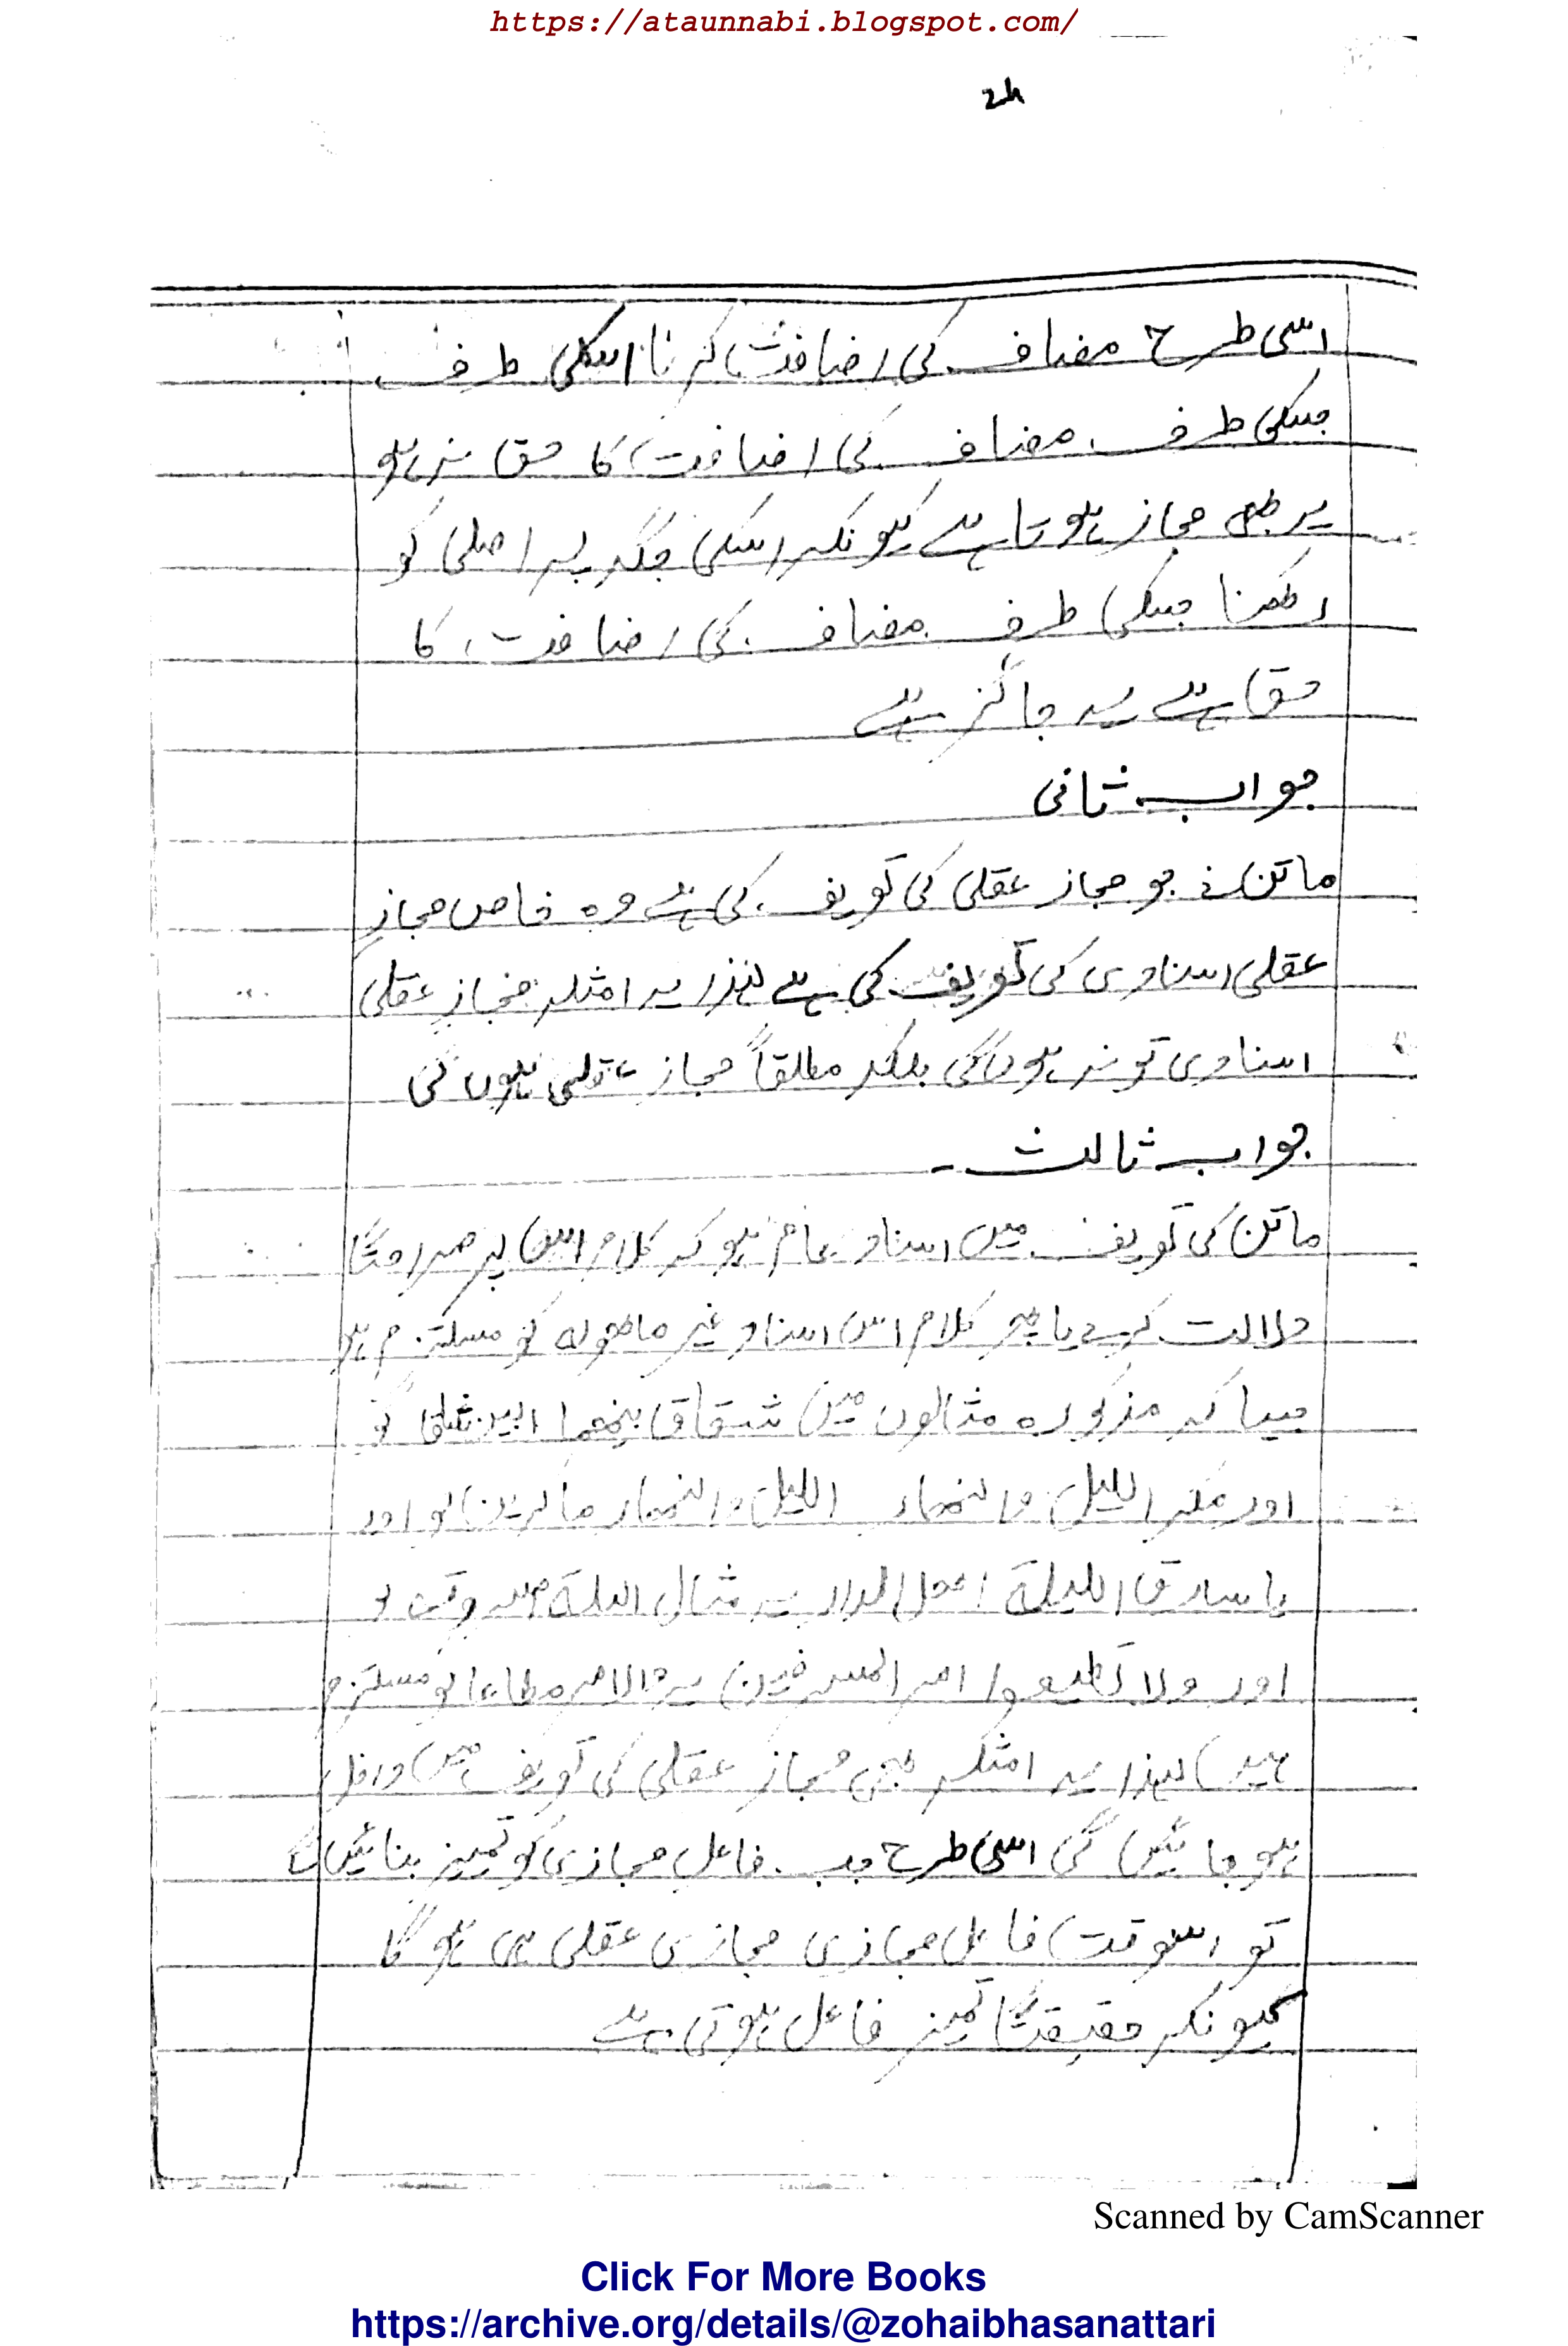 https://ataunnabi.blogspot.com/
24
اسی طرح مضاف کی اضافت کرنا اسکی طرف
جسکی طرف مضاف کی اضافت کا حق نہ ہو
یہ بھی مجاز ہوتا ہے کیونکہ اسکی جگہ پہ اصلی کو
رکھنا جسکی طرف مضاف کی اضافت کا
حق ہے یہ جائز ہے
جواب ثانی
ماتن نے جو مجاز عقلی کی تعریف کی ہے وہ خاص مجاز
عقلی اسنادی کی تعریف کی ہے لہذا یہ امثلہ مجازِ عقلی
اسنادی تو نہ ہوں گی بلکہ مطلقاً مجاز عقلی ہوں گی
جواب ثالث۔
ماتن کی تعریف میں اسناد عام ہو کہ کلام اس پر صراحتاً
دلالت کرے یا پھر کلام اس اسناد غیر ماھولہ کو مستلزم ہو
جیسا کہ مذکورہ مثالوں میں شقاق بینھما البین شاقا کو
اور مکر اللیل و النھار اللیل و النھار ماکرین کو اور
یا سارق اللیلۃ اھل الدار یہ مثال اللیلۃ مسروقۃ کو
اور ولا تطیعوا امر المسرفین یہ الامر مطاعا کو مستلزم
ہیں لہذا یہ امثلہ بھی مجاز عقلی کی تعریف میں داخل
ہو جائیں گی اسی طرح جب فاعل مجازی کو تمییز بنائیں گے
تو اسوقت فاعل مجازی مجازی عقلی ہی ہو گا
کیونکہ حقیقتاً تمییز فاعل ہوتی ہے
Scanned by CamScanner
Click For More Books
https://archive.org/details/@zohaibhasanattari